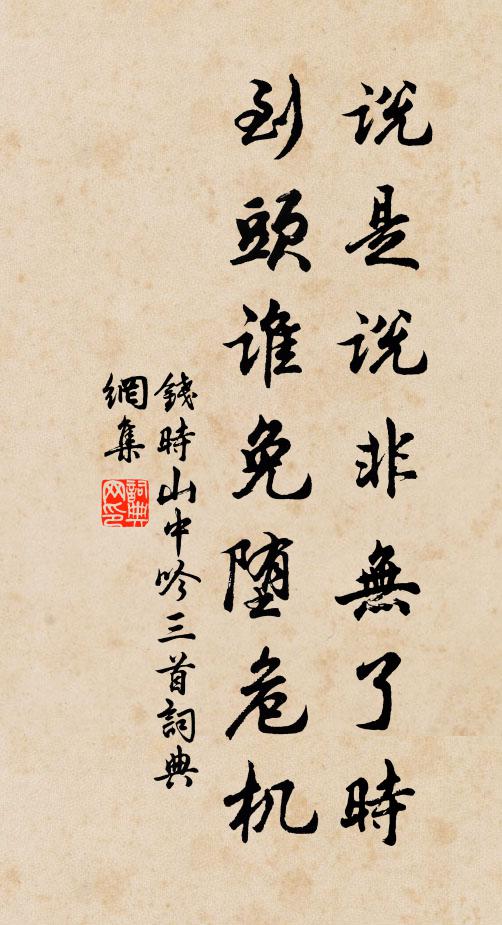 說是說非無了時
到頭誰免堕危机
錢時山中吟三首詞典
網集
詞典
网印